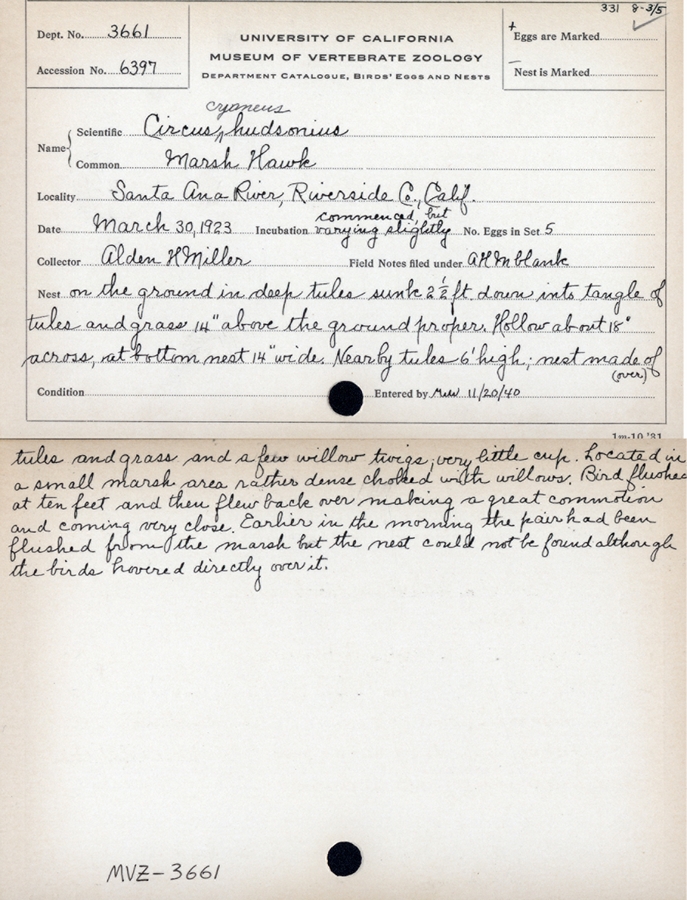 331 8-3/5
Dept. No. 3661
Accession No. 6397
UNIVERSITY OF CALIFORNIA
MUSEUM OF VERTEBRATE ZOOLOGY
DEPARTMENT CATALOGUE, BIRDS' EGGS AND NESTS
+
Eggs are Marked
–
Nest is Marked
cyaneus
Name Scientific Circus hudsonius
Common Marsh Hawk
Locality Santa Ana River, Riverside Co., Calif.
commenced, but
Date March 30, 1923 Incubation varying slightly No. Eggs in Set 5
Collector Alden H Miller Field Notes filed under AHM blank
Nest on the ground in deep tules sunk 2 1/2 ft. down into tangle of
tules and grass 14" above the ground proper. Hollow about 18"
across, at bottom nest 14" wide. Nearby tules 6' high; nest made of
(over.)
Condition Entered by 11/20/40
1m-10,'31
tules and grass and a few willow twigs; very little cup. Located in
a small marsh area rather dense choked with willows. Bird flushed
at ten feet and then flew back over making a great commotion
and coming very close. Earlier in the morning the pair had been
flushed from the marsh but the nest could not be found although
the birds hovered directly over it.
MVZ-3661